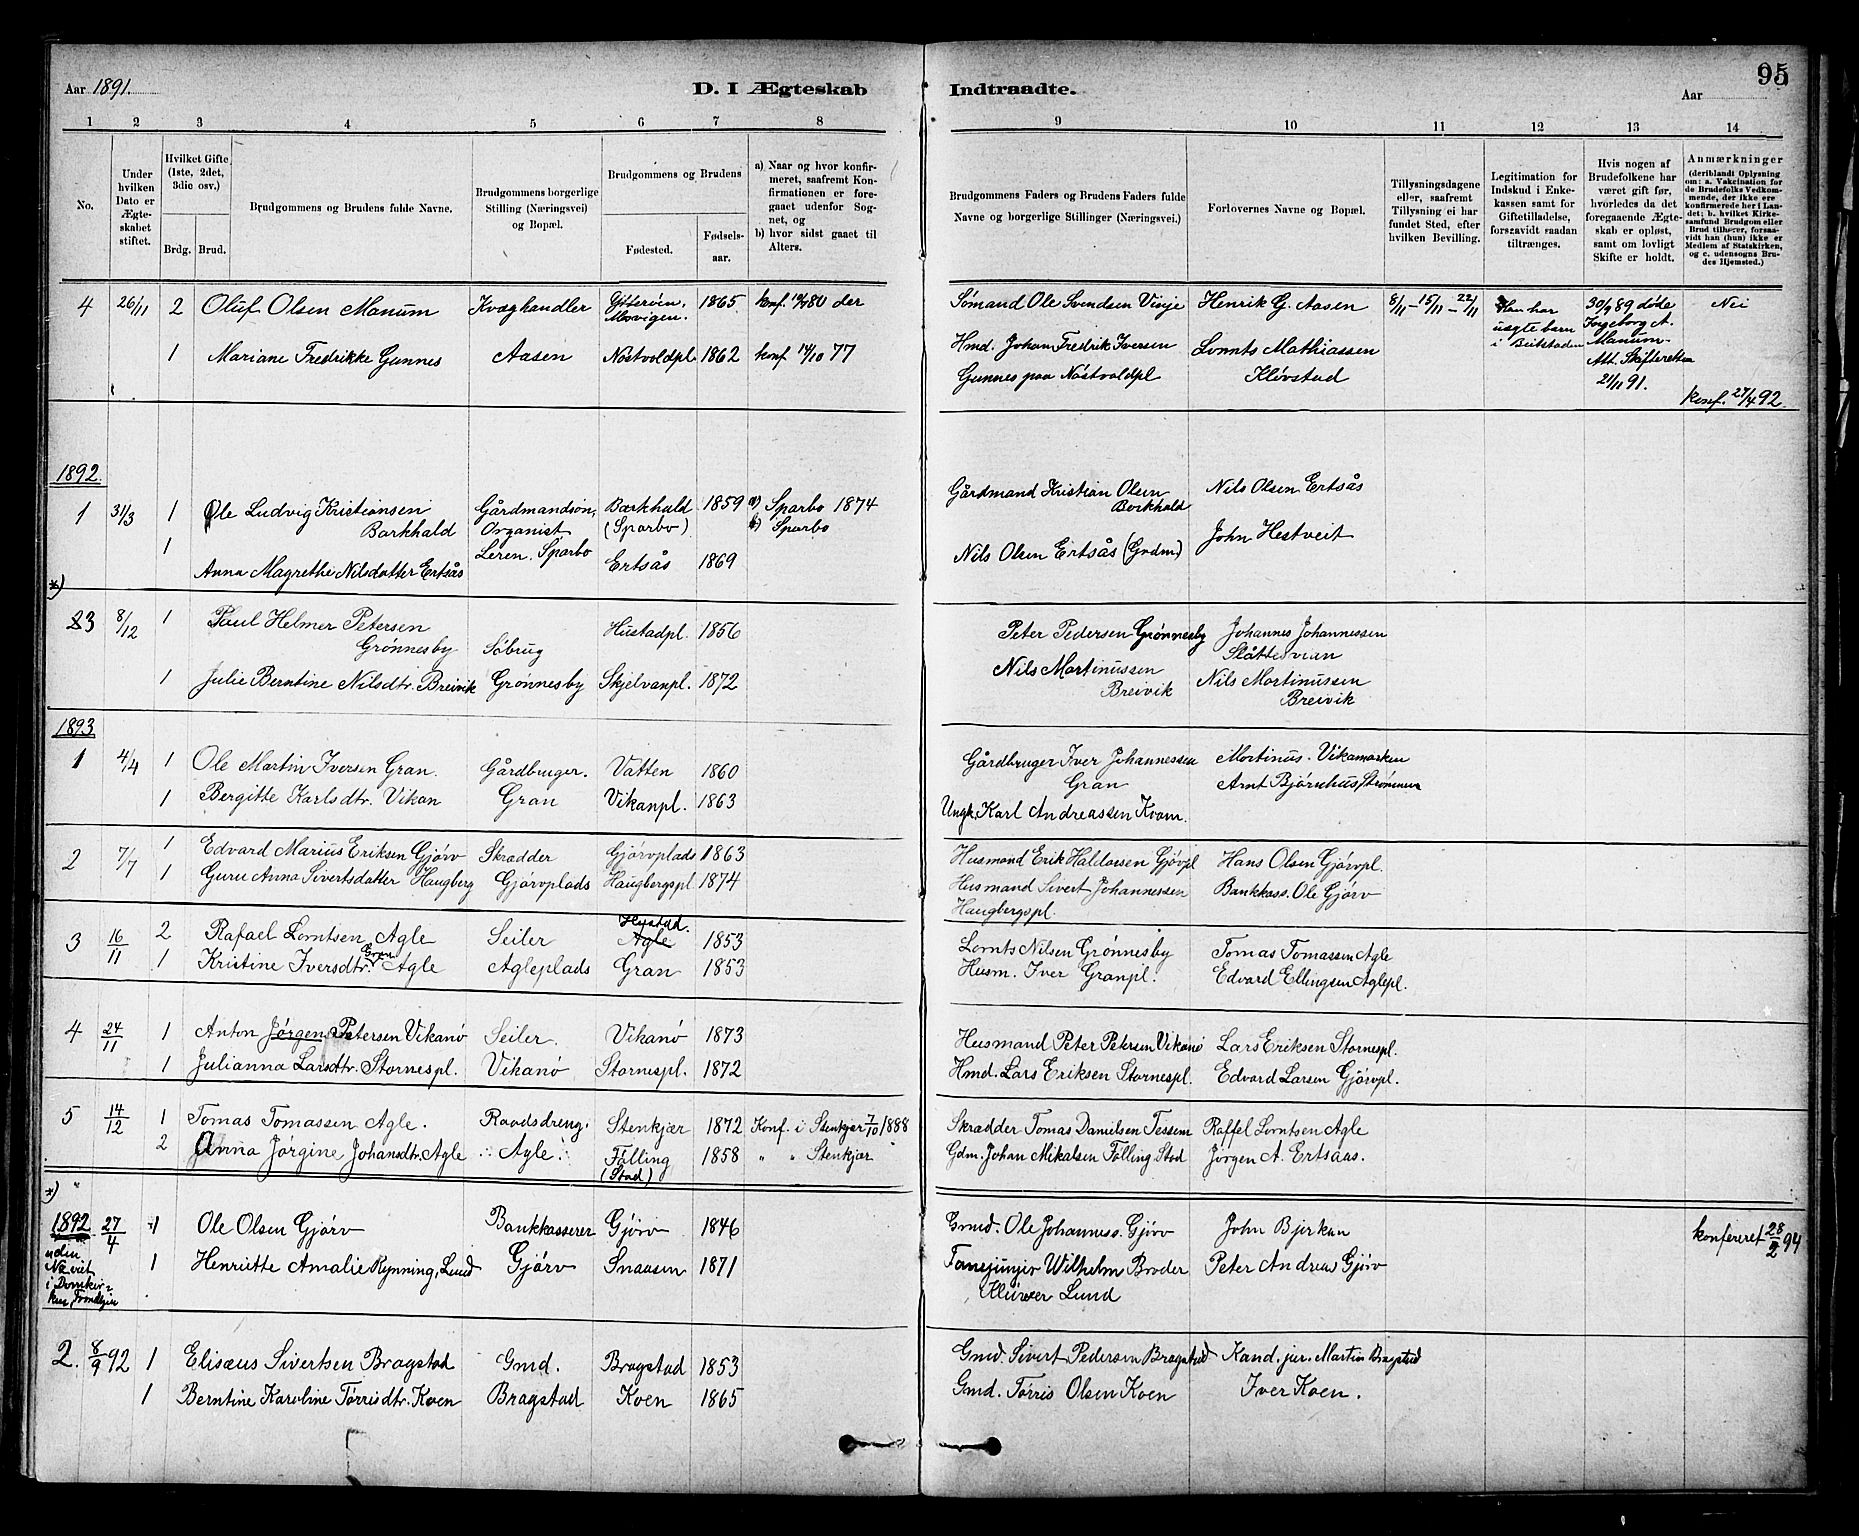 Aar 1891.
D. I Ægteskab
Indtraadte.
95
Aar
1 2 3 4 5 6 7 8 9 10 11 12 13 14
No.
Under hvilken Dato er Ægteskabet stiftet.
Hvilket Gifte (1ste, 2det, 3die osv.)
Brdg. Brud.
Brudgommens og Brudens fulde Navne.
Brudgommens borgerlige Stilling (Næringsvei) og Bopæl.
Brudgommens og Brudens
Fødested.
Fødselsaar.
a) Naar og hvor konfirmeret, saafremt Konfirmationen er foregaaet udenfor Sognet, og
b) hvor sidst gaaet til Alters.
Brudgommens Faders og Brudens Faders fulde Navne og borgerlige Stillinger (Næringsvei.)
Forlovernes Navne og Bopæl.
Tillysningsdagene eller, saafremt Tillysning ei har fundet Sted, efter hvilken Bevilling.
Legitimation for Indskud i Enkekassen samt for Giftetilladelse, forsaavidt saadan tiltrænges.
Hvis nogen af Brudefolkene har været gift før, hvorledes da det foregaaende Ægteskab er opløst, samt om lovligt Skifte er holdt.
Anmærkninger (deriblandt Oplysning om: a. Vakcination for de Brudefolks Vedkommende, der ikke ere konfirmerede her i Landet; b. hvilket Kirkesamfund Brudgom eller Brud tilhører, forsaavidt han (hun) ikke er Medlem af Statskirken, og c. udensogns Brudes Hjemsted.)
4 26/11 2 Oluf Olsen Manum Kvæghandler 1865 konf. 80 der Sømand Ole Svendsen Vinje Henrik G. Aasen 8/11 - 15/11 - 22/11 Han har uægte barn i Beitstaden 30/9 89 døde Ingeborg A. Manum. Att. Skifteretten 21/11 91. Nei
1 Mariane Fredrikke Gunnes Aasen Nøstvoldpl. 1862 konf 14/10 77 Hmd. Johan Fredrik Iversen Gunnes paa Nøstvoldpl Lornts Mathiassen Kløvstad
konf. 27/4 92.
1892.
1 31/3 1 Ole Ludvig Kristiansen Barkhald Gårdmandsøn, Organist Barkhald (Sparbo) 1859 a) Sparbo 1874 b) Sparbo Gårdmand Kristian Olsen Barkhald Nils Olsen Ertsås
1 Anna Magrethe Nilsdatter Ertsås Leren. Sparbo Ertsås 1869 Nils Olsen Ertsås (Grdm) John Hestveit
*)
3 8/12 1 Paul Helmer Petersen Grønnesby Søbrug Hustadpl. 1856 Peter Pedersen Grønnesby Johannes Johannessen
1 Julie Berntine Nilsdtr. Breivik Grønnesby Skjelvanpl. 1872 Nils Martinussen Breivik Nils Martinussen Breivik
1893
1 4/4 1 Ole Martin Iversen Gran. Gårdbruger. Vatten 1860 Gårdbruger Iver Johannessen Gran Martinus Vikamarken
1 Bergitte Karlsdtr. Vikan Gran Vikanpl. 1863 Ungk. Karl Andreassen Kvam. Arnt Bjørnhus, Strømmen
2 7/7 1 Edvard Marius Eriksen Gjørv Skrædder Gjørvplads 1863 Husmand Erik Haldorsen Gjørvpl Hans Olsen Gjørvpl.
1 Guru Anna Sivertsdatter Haugberg Gjørvplads Haugbergspl. 1874 Husmand Sivert Johannessen Haugbergspl. Bankkass. Ole Gjørv
3 16/11 2 Rafael Lorntsen Agle Seiler Hustad. Agle 1853 Lornts Nilsen Grønnesby Tomas Tomassen Agle
1 Kristine Iversdtr. Gran Agle Agleplads Gran 1853 Husm. Iver Granpl. Edvard Ellingsen Aglepl.
4 24/11 1 Anton Jørgen Petersen Vikanø Seiler. Vikanø 1873 Husmand Peter Petersen Vikanø Lars Eriksen Stornespl.
1 Julianna Larsdtr. Stornespl. Vikanø Stornespl. 1872 Hmd. Lars Eriksen Stornespl. Edvard Larsen Gjørvpl.
5 14/12 1 Tomas Tomassen Agle. Raadsdreng. Stenkjær 1872 Konf. i Stenkjær 7/10 1888 Skrædder Tomas Danielsen Tessem Raffel Lorntsen Agle
2 Anna Jørgine Johansdtr. Agle Agle Følling (Stod) 1858 " " Stenkjær Gdm. Johan Mikalsen Følling Stod Jørgen A. Ertsaas.
*)
1892 27/4 1 Ole Olsen Gjørv Bankkasserer Gjørv 1846 Gmd. Ole Johanness. Gjørv John Bjerkan konfereret 28/2 94
uden No viet i Domkirken, Trondhjem
1 Henriette Amalie Rynning, Lund Gjørv Snaasen 1871 Fanejunjer Wilhelm Broder Klüwer Lund Peter Andreas Gjørv
2. 8/9 92 1 Elisæus Sivertsen Bragstad Gmd. Bragstad 1853 Gmd. Sivert Pedersen Bragstad Kand. jur. Martin Bragstad
1 Berntine Karoline Tørrisdtr. Koen Bragstad Koen 1865 Gmd. Tørris Olsen Koen Iver Koen.